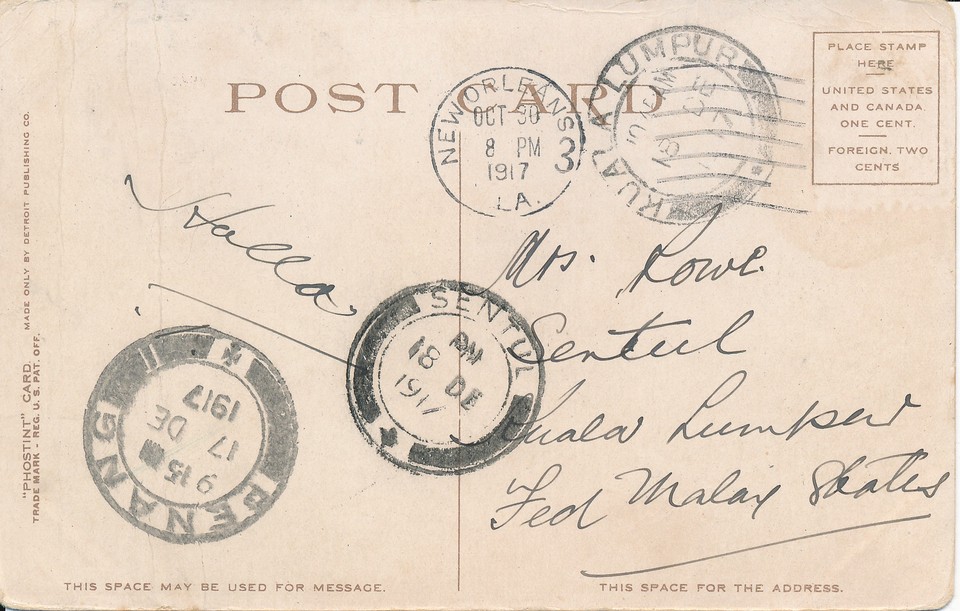 POST CARD
PLACE STAMP
HERE
UNITED STATES
AND CANADA
ONE CENT.
FOREIGN, TWO
CENTS
NEW ORLEANS
OCT 30
8 PM
1917
LA.
3
KUALA LUMPUR
Mrs. Rowe.
Sentul
Kuala Lumper
Fed Malay States
SENTUL
18 DE
1917
PENANG
9 15
17 DE
1917
"PHOSTINT" CARD. MADE ONLY BY DETROIT PUBLISHING CO.
TRADE MARK - REG. U. S. PAT. OFF.
THIS SPACE MAY BE USED FOR MESSAGE.
THIS SPACE FOR THE ADDRESS.